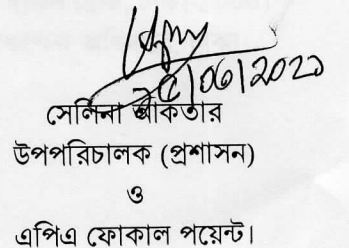 ২৫/06/2021
সেলিনা আকতার
উপপরিচালক (প্রশাসন)
ও
এপিএ ফোকাল পয়েন্ট।